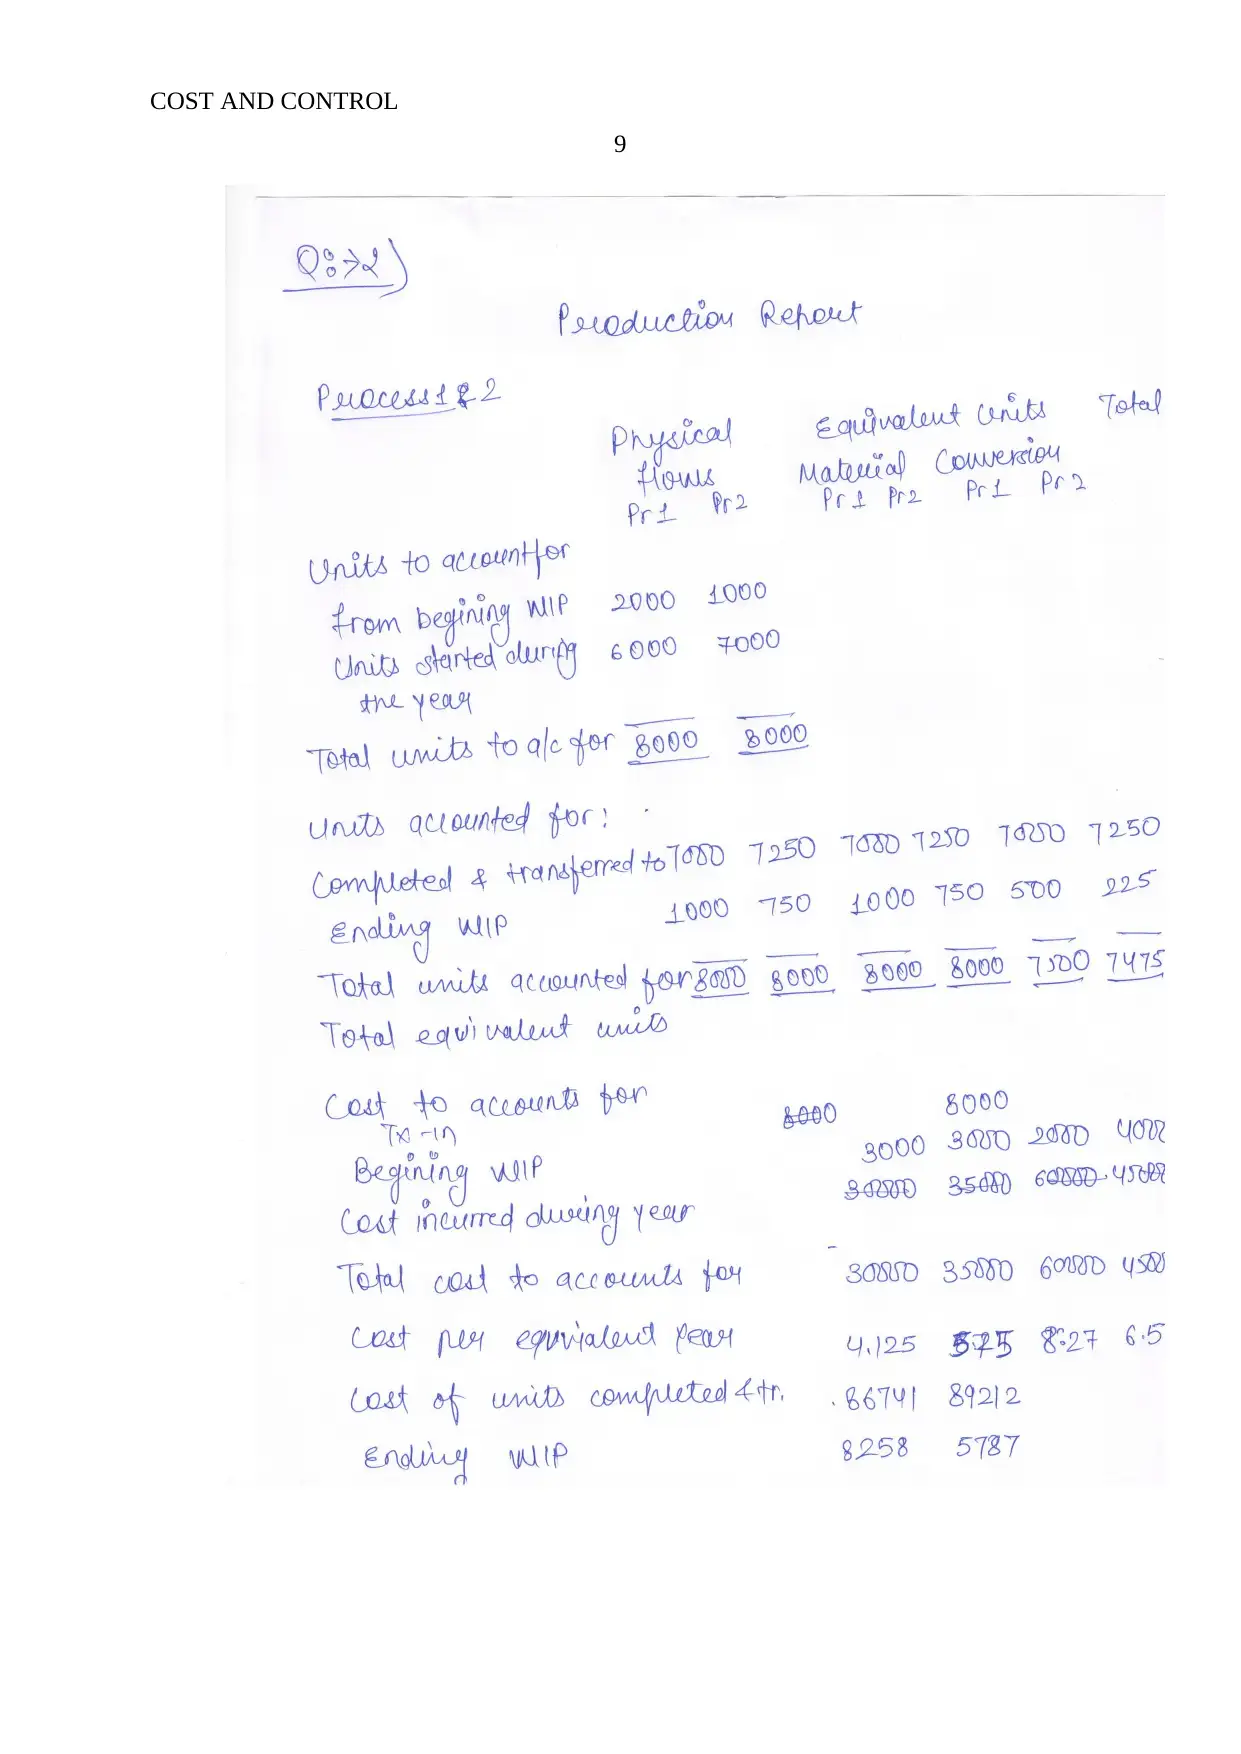 COST AND CONTROL
9
Q:→2)
Production Report
Process 1 & 2
Physical Equivalent Units Total
flows Material Conversion
Pr 1 Pr 2 Pr 1 Pr 2 Pr 1 Pr 2
Units to account for
from begining WIP 2000 1000
Units started during 6000 7000
the year
Total units to a/c for 8000 8000
Units accounted for:
Completed & transferred to 7000 7250 7000 7250 7000 7250
Ending WIP 1000 750 1000 750 500 225
Total units accounted for 8000 8000 8000 8000 7500 7475
Total equivalent units
Cost to accounts for 8000 8000
Tx-in
Begining WIP 3000 3000 2000 4000
Cost incurred during year 30000 35000 60000 45000
Total cost to accounts for 30000 35000 60000 4500
Cost per equivalent year 4.125 8.27 6.5
Cost of units completed & tr. 86741 89212
Ending WIP 8258 5787